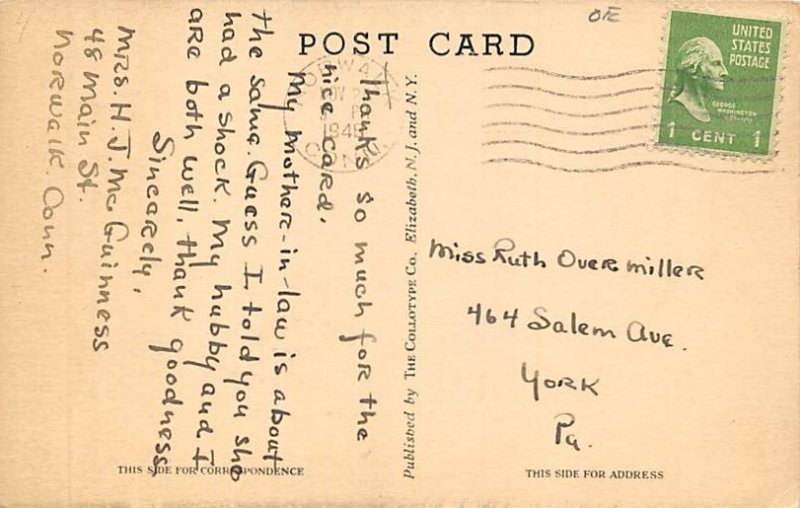 POST CARD
OE
UNITED
STATES
POSTAGE
GEORGE
WASHINGTON
1 CENT 1
NORWALK
1948
CONN.
Thanks so much for the
nice card.
My mother-in-law is about
the same. Guess I told you she
had a shock. My hubby and I
are both well, thank goodness
Sincerely,
Mrs. H. J. Mc Guinness
48 Main St.
Norwalk. Conn.
Published by THE COLLOTYPE Co. Elizabeth, N. J., and N. Y.
Miss Ruth Overmiller
464 Salem Ave.
York
Pa.
THIS SIDE FOR CORRESPONDENCE
THIS SIDE FOR ADDRESS